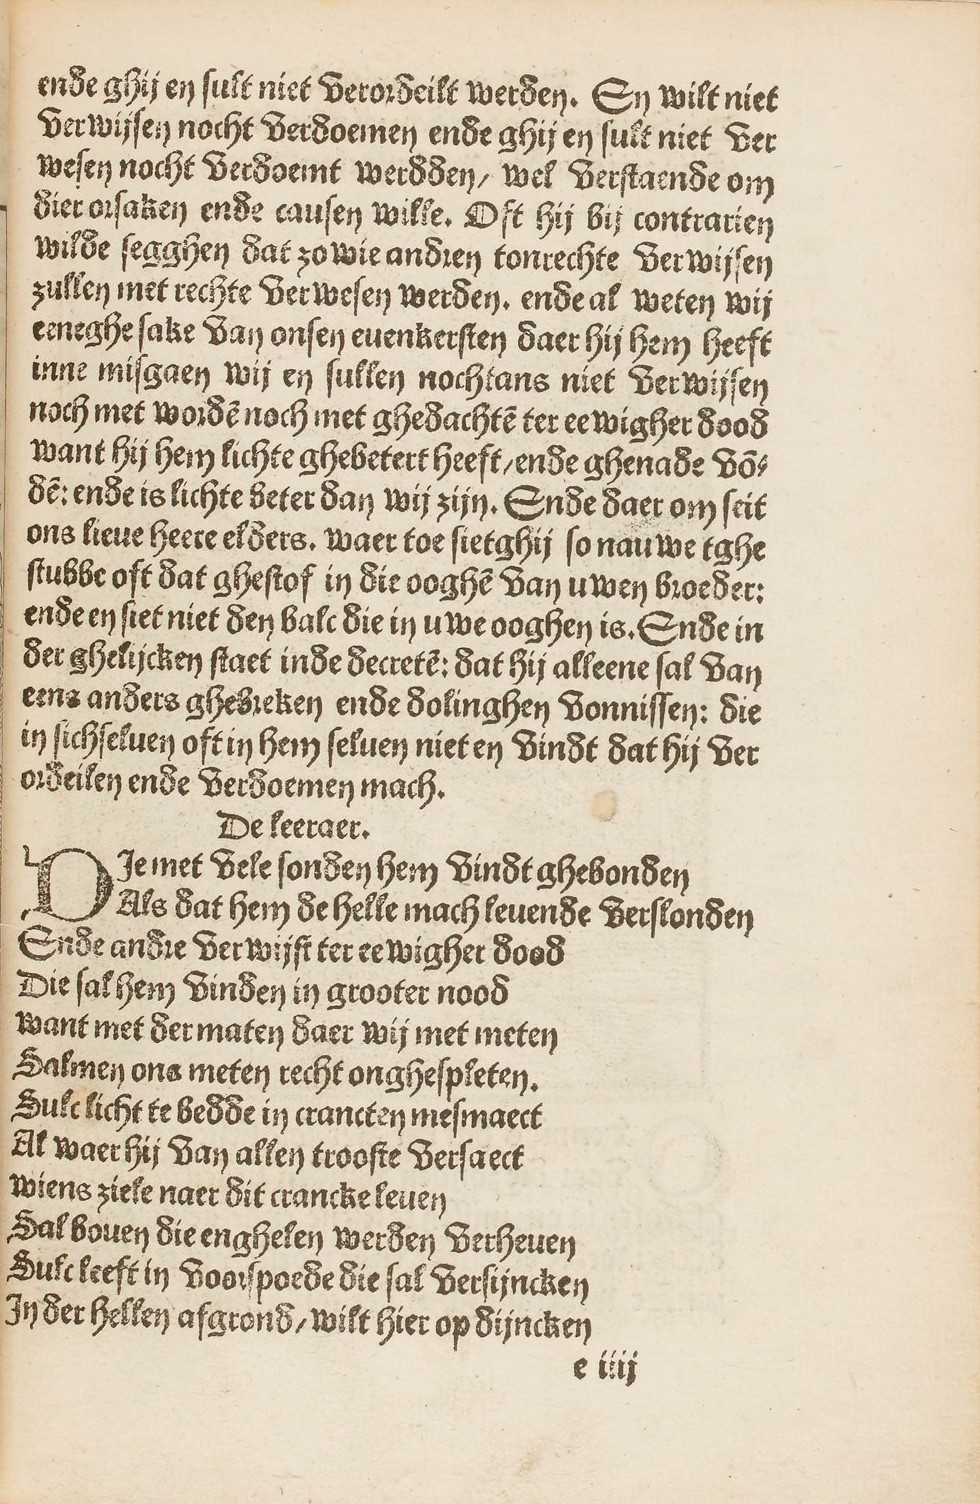 ende ghij en sult niet verordeilt werden. En wilt niet
verwijsen nocht verdoemen ende ghij en sult niet ver
wesen nocht verdoemt werdden/ wel verstaende om
dier orsaken ende causen wille. Oft hij bij contrarien
wilde segghen dat zo wie andren tonrechte verwijsen
zullen met rechte verwesen werden. ende al weten wij
eeneghe sake van onsen evenkersten daer hij hem heeft
inne misgaen wij en sullen nochtans niet verwijsen
noch met wordē noch met ghedachtē ter eewigher dood
want hij hem lichte ghebetert heeft/ende ghenade vō⸗
dē: ende is lichte beter dan wij zijn. Ende daer om seit
ons lieue heere elders. waer toe sietghij so nauwe tghe
stubbe oft dat ghestof in die ooghē van uwen broeder:
ende en siet niet den balc die in uwe ooghen is. Ende in
der ghelijcken staet inde decretē: dat hij alleene sal van
eens anders ghebreken ende dolinghen vonnissen: die
in sichseluen oft in hem seluen niet en vindt dat hij ver
ordeilen ende verdoemen mach.
De leeraer.
DIe met vele sonden hem vindt ghebonden
Als dat hem de helle mach leuende verslonden
Ende andre verwijst ter eewigher dood
Die sal hem vinden in grooter nood
want met der maten daer wij met meten
Salmen ons meten recht onghespleten.
Sulc licht te bedde in crancten mesmaect
Al waer hij van allen trooste versaect
wiens ziele naer dit crancke leuen
Sal bouen die enghelen werden verheuen
Sulc leeft in voorspoede die sal versijncken
In der hellen afgrond/ wilt hier op dijncken
e iiij